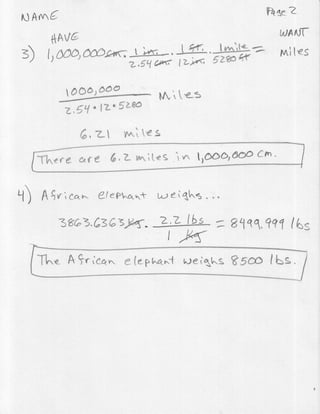 NAME Page 2
HAVE WANT
3) 1,000,000 cm. · 1 in. / 2.54 cm · 1 ft. / 12 in · 1 mile / 5280 ft = Miles
1000,000 / 2.54 • 12 • 5280 Miles
6.21 miles
There are 6.2 miles in 1,000,000 cm.
4) African elephant weighs...
3863.6363 kg. · 2.2 lbs / 1 kg = 8499.999 lbs
The African elephant weighs 8500 lbs.